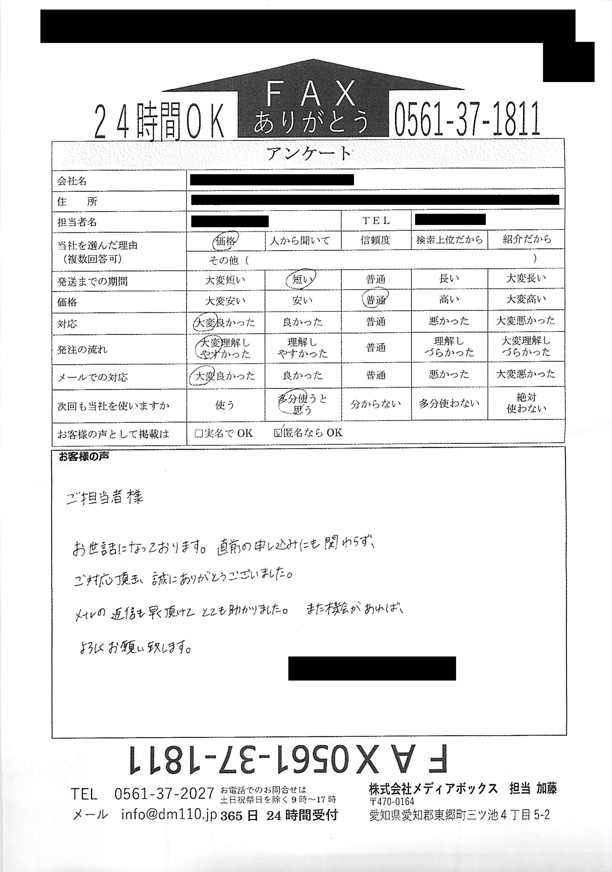 FAX
ありがとう
24時間OK
0561-37-1811
アンケート
会社名
住　所
担当者名　TEL
当社を選んだ理由（複数回答可）　価格　人から聞いて　信頼度　検索上位だから　紹介だから
その他（　）
発送までの期間　大変短い　短い　普通　長い　大変長い
価格　大変安い　安い　普通　高い　大変高い
対応　大変良かった　良かった　普通　悪かった　大変悪かった
発注の流れ　大変理解しやすかった　理解しやすかった　普通　理解しづらかった　大変理解しづらかった
メールでの対応　大変良かった　良かった　普通　悪かった　大変悪かった
次回も当社を使いますか　使う　多分使うと思う　分からない　多分使わない　絶対使わない
お客様の声として掲載は　□実名でOK　☑匿名ならOK
お客様の声
ご担当者様
お世話になっております。直前の申し込みにも関わらず、
ご対応頂き、誠にありがとうございました。
メールの返信も早く頂けてとても助かりました。また機会があれば、
よろしくお願い致します。
FAX0561-37-1811
TEL　0561-37-2027　お電話でのお問合せは土日祝祭日を除く9時～17時
メール　info@dm110.jp　365日 24時間受付
株式会社メディアボックス　担当 加藤
〒470-0164
愛知県愛知郡東郷町三ツ池4丁目5-2